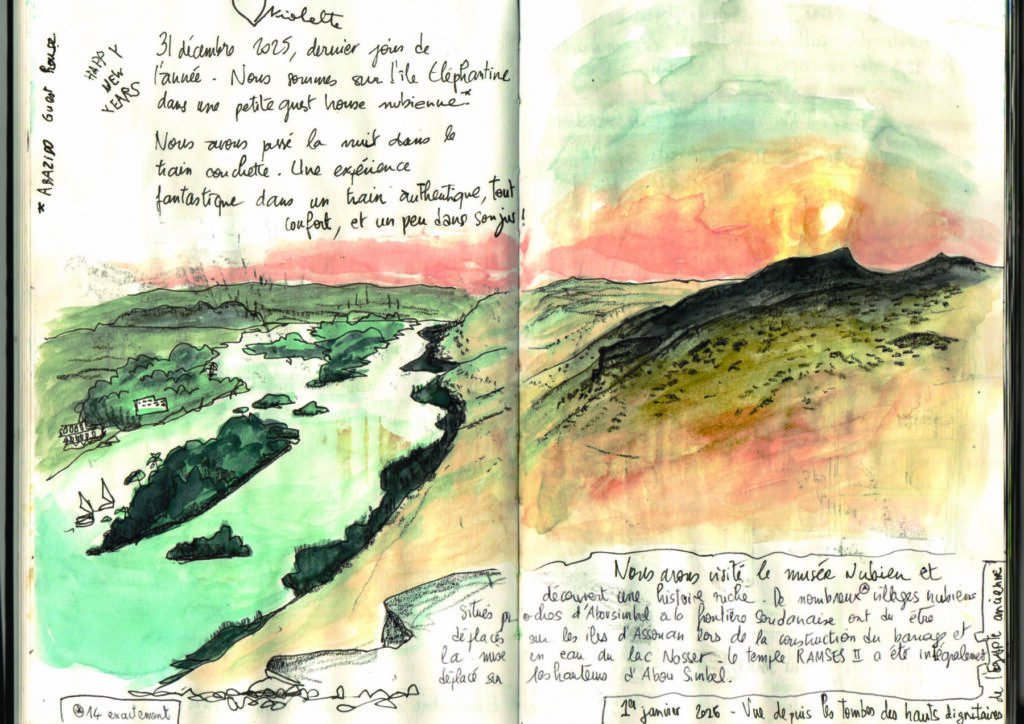 Violette
HAPPY
NEW
YEARS
* ABAZIDO Guest House
31 décembre 2025, dernier jour de
l'année. Nous sommes sur l'île Eléphantine
dans une petite guest house nubienne*
Nous avons passé la nuit dans le
train couchette. Une expérience
fantastique dans un train authentique, tout
confort, et un peu dans son jus !
Nous avons visité le musée Nubien et
découvert une histoire riche. De nombreux villages nubiens
situés proches d'Abou simbel à la frontière soudanaise ont du être
déplacés sur les iles d'Assouan lors de la construction du barrage et
la mise en eau du lac Nasser. Le temple RAMSES II a été intégralement
déplacé sur les hauteurs d'Abou Simbel.
14 exactement
1er janvier 2026 - Vue depuis les tombes des hauts dignitaires
de l'Egypte ancienne